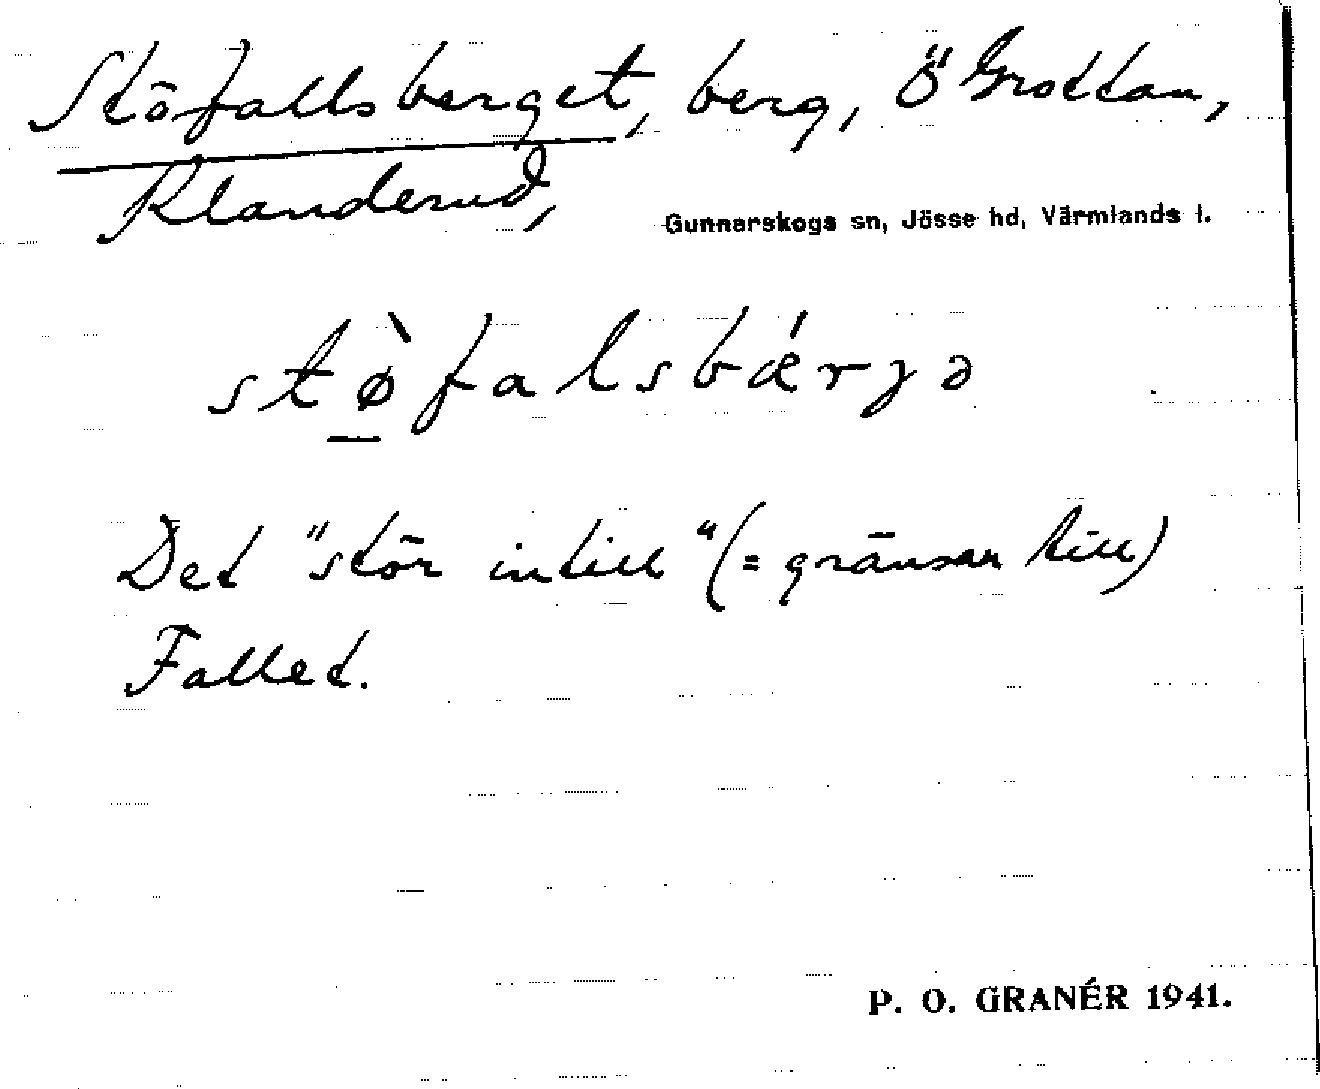 Stöfallsberget, berg, Ö Grottan,
Klanderud,
Gunnarskogs sn, Jösse hd, Värmlands l.
stø̀falsbǽrjə
Det "stör intill" (= gränsar till)
Fallet.
P. O. GRANÉR 1941.